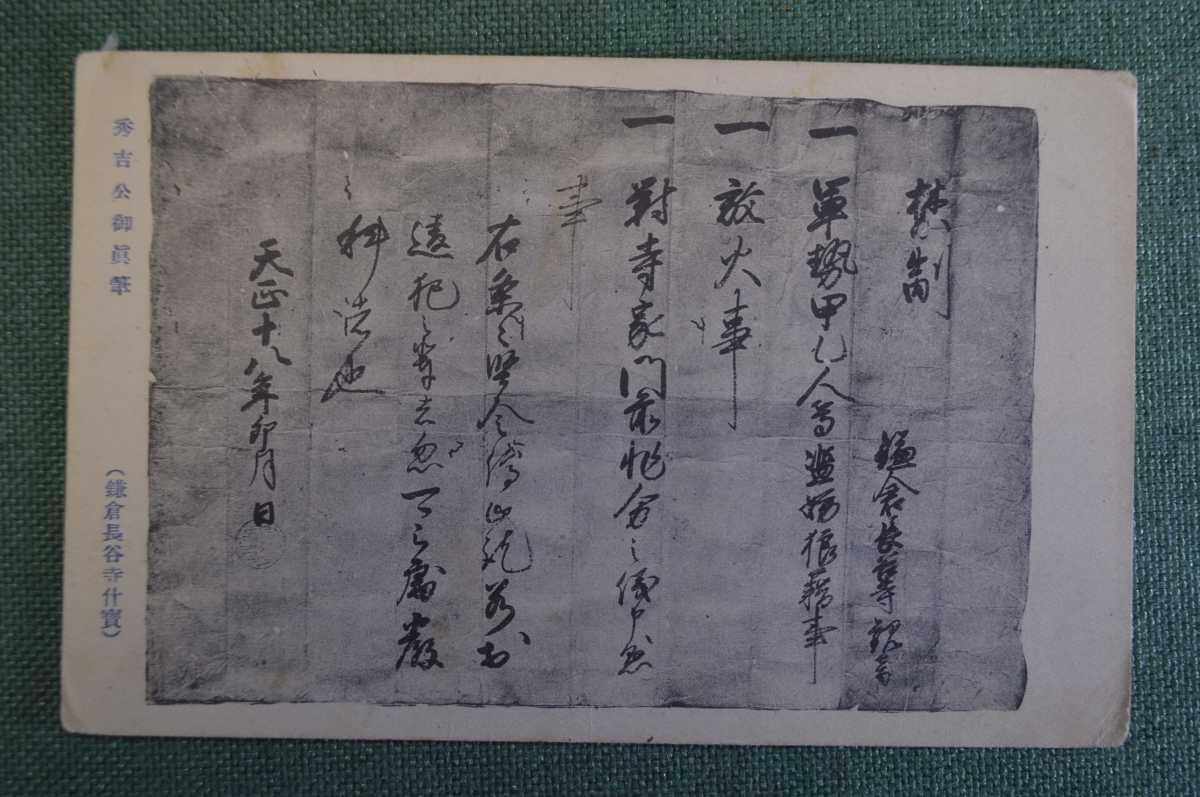 禁制
鎌倉長等観音
一 軍勢甲乙人等濫妨狼藉事
一 放火事
一 対寺家門前非分之儀申懸
事
右条々堅令停止訖若於
違犯之輩者忽可被処厳
科者也
天正十八年卯月 日
秀吉公御眞筆
(鎌倉長谷寺什寳)